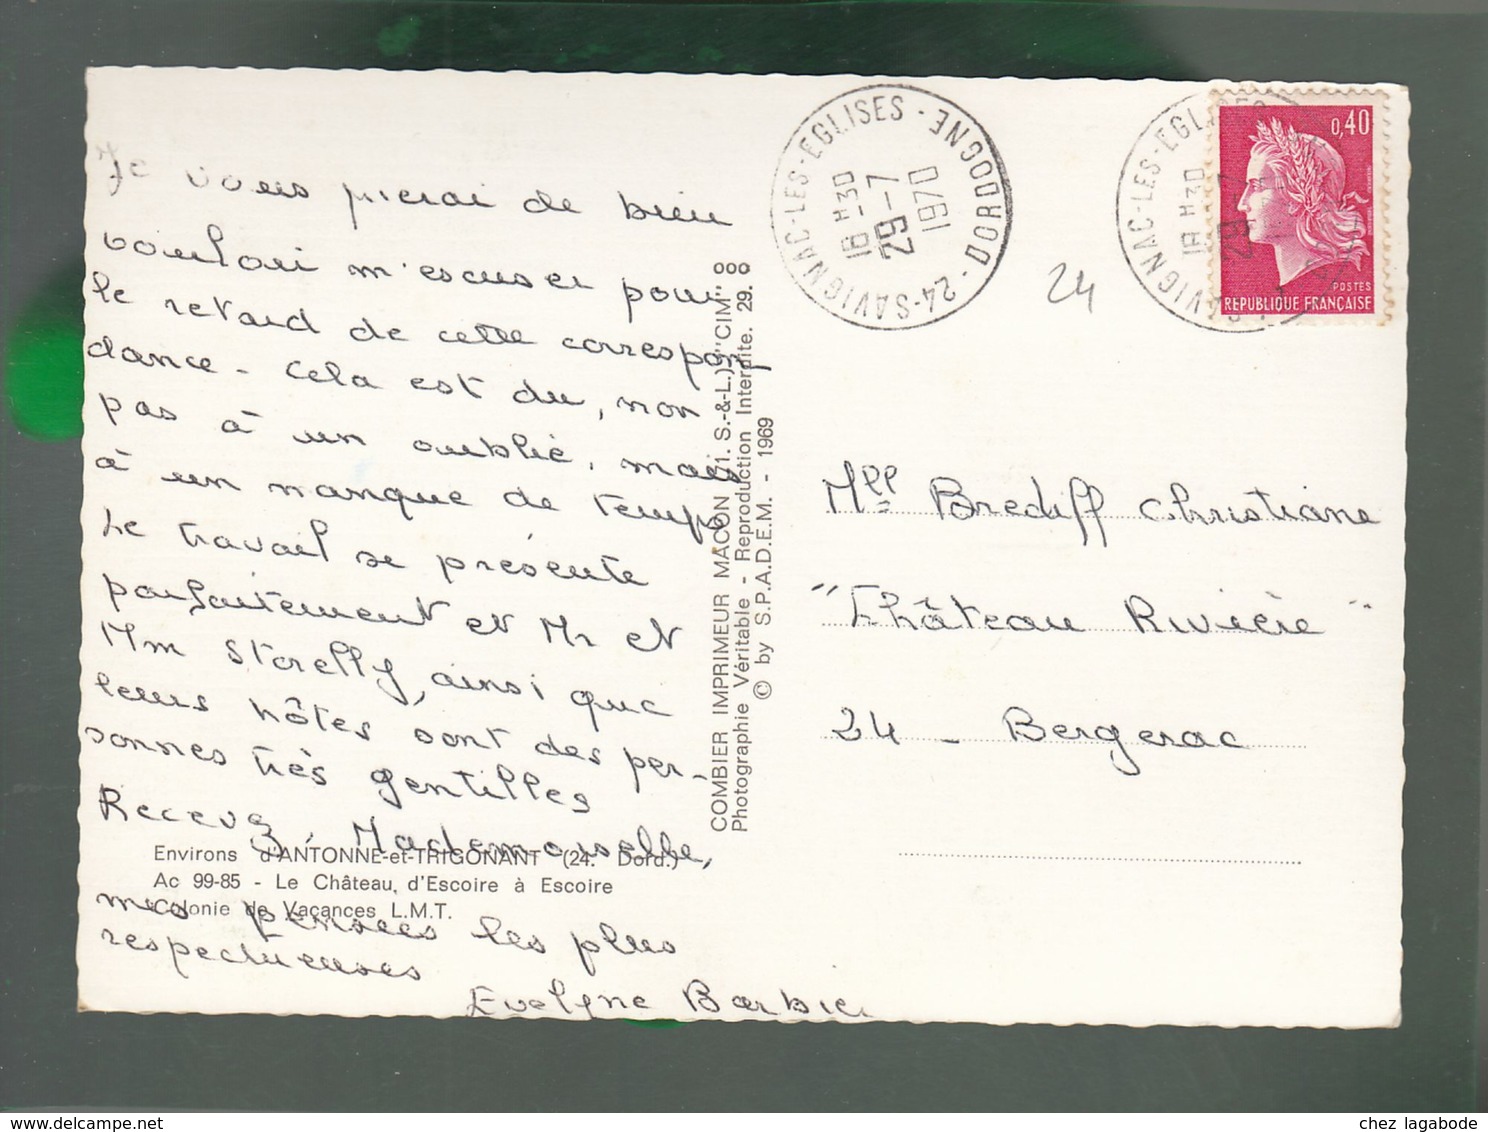 Je vous pierai de bien
vouloir m'escuser pour
le retard de cette correspon
dance - Cela est du, non
pas à un oublié, mais
à un manque de temps
Le travail se présente
parfaitement et Mr et
Mm Storelly, ainsi que
leurs hôtes sont des per-
sonnes très gentilles
Recevez, Mademoiselle,
mes pensées les plus
respectueuses
Evelyne Barbier
Environs d'ANTONNE-et-TRIGONANT (24. Dord.)
Ac 99-85 - Le Château d'Escoire à Escoire
Colonie de Vacances L.M.T.
COMBIER IMPRIMEUR MACON (1. S.-&-L.) "CIM"
Photographie Véritable - Reproduction Interdite. 29.
© by S.P.A.D.E.M. - 1969
24-SAVIGNAC-LES-EGLISES - DORDOGNE
18 H-30
29-7
1970
SAVIGNAC-LES-EGLISES
18 H-30
29
0,40
POSTES
REPUBLIQUE FRANÇAISE
24
Mll Brediff Christiane
"Château Rivière"
24 - Bergerac
chez lagabode